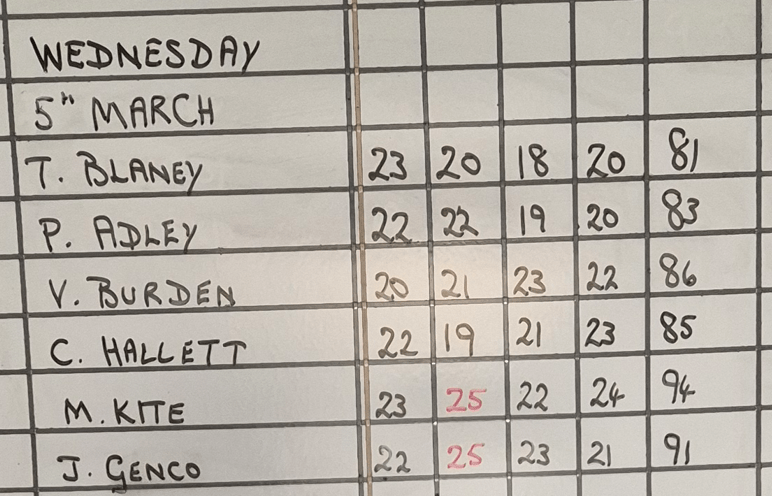 WEDNESDAY
5TH MARCH
T. BLANEY 23 20 18 20 81
P. ADLEY 22 22 19 20 83
V. BURDEN 20 21 23 22 86
C. HALLETT 22 19 21 23 85
M. KITE 23 25 22 24 94
J. GENCO 22 25 23 21 91